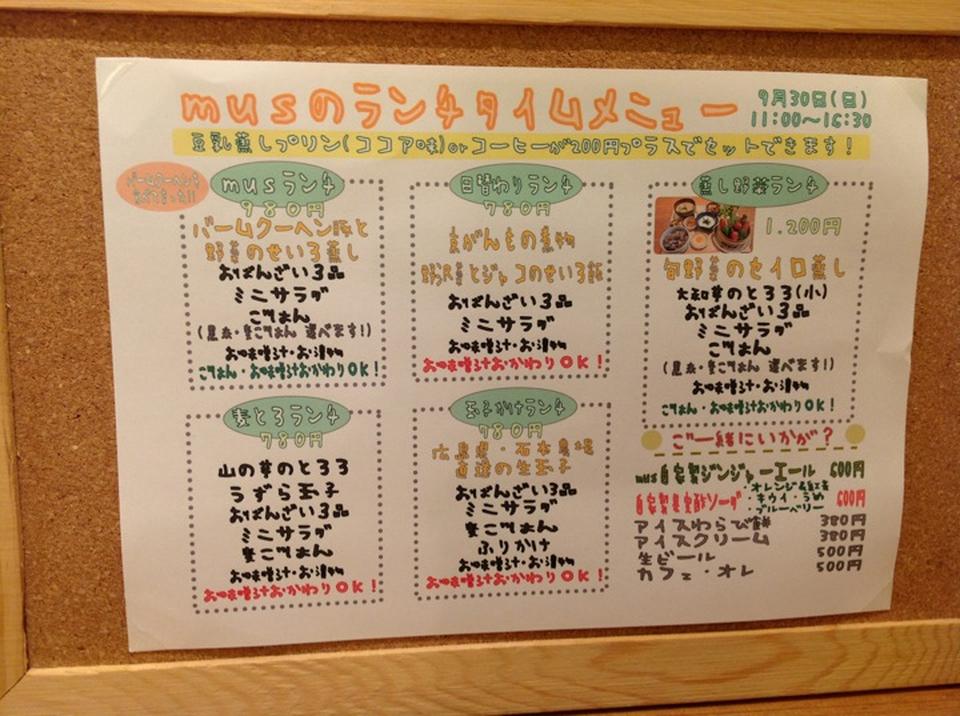 musのランチタイムメニュー
9月30日(日)
11:00〜16:30
豆乳蒸しプリン(ココア味)orコーヒーが200円プラスでセットできます！
バームクーヘンを
musランチ
980円
バームクーヘン豚と
野菜のせいろ蒸し
おばんざい3品
ミニサラダ
ごはん
(黒米・麦ごはん 選べます!)
お味噌汁・お漬物
ごはん・お味噌汁おかわりOK!
日替わりランチ
780円
京がんもの煮物
野沢菜とジャコのせいろ飯
おばんざい3品
ミニサラダ
お味噌汁・お漬物
お味噌汁おかわりOK!
蒸し野菜ランチ
1.200円
旬野菜のセイロ蒸し
大和芋のとろろ(小)
おばんざい3品
ミニサラダ
ごはん
(黒米・麦ごはん 選べます!)
お味噌汁・お漬物
ごはん・お味噌汁おかわりOK!
麦とろランチ
780円
山の芋のとろろ
うずら玉子
おばんざい3品
ミニサラダ
麦ごはん
お味噌汁・お漬物
お味噌汁おかわりOK!
玉子かけランチ
780円
広島県・石本農場
直送の生玉子
おばんざい3品
ミニサラダ
麦ごはん
ふりかけ
お味噌汁・お漬物
お味噌汁おかわりOK!
ご一緒にいかが？
mus自家製ジンジャーエール 600円
自家製果実酢ソーダ 600円
・オレンジ&紅茶
・キウイ・うめ
・ブルーベリー
アイスわらび餅 380円
アイスクリーム 380円
生ビール 500円
カフェ・オレ 500円